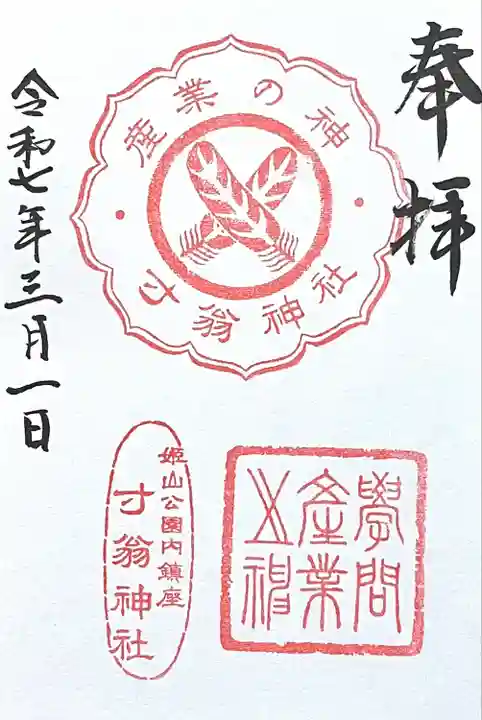 奉拝
産業の神
寸翁神社
令和七年三月一日
學問
産業
之神
姫山公園内鎮座
寸翁神社